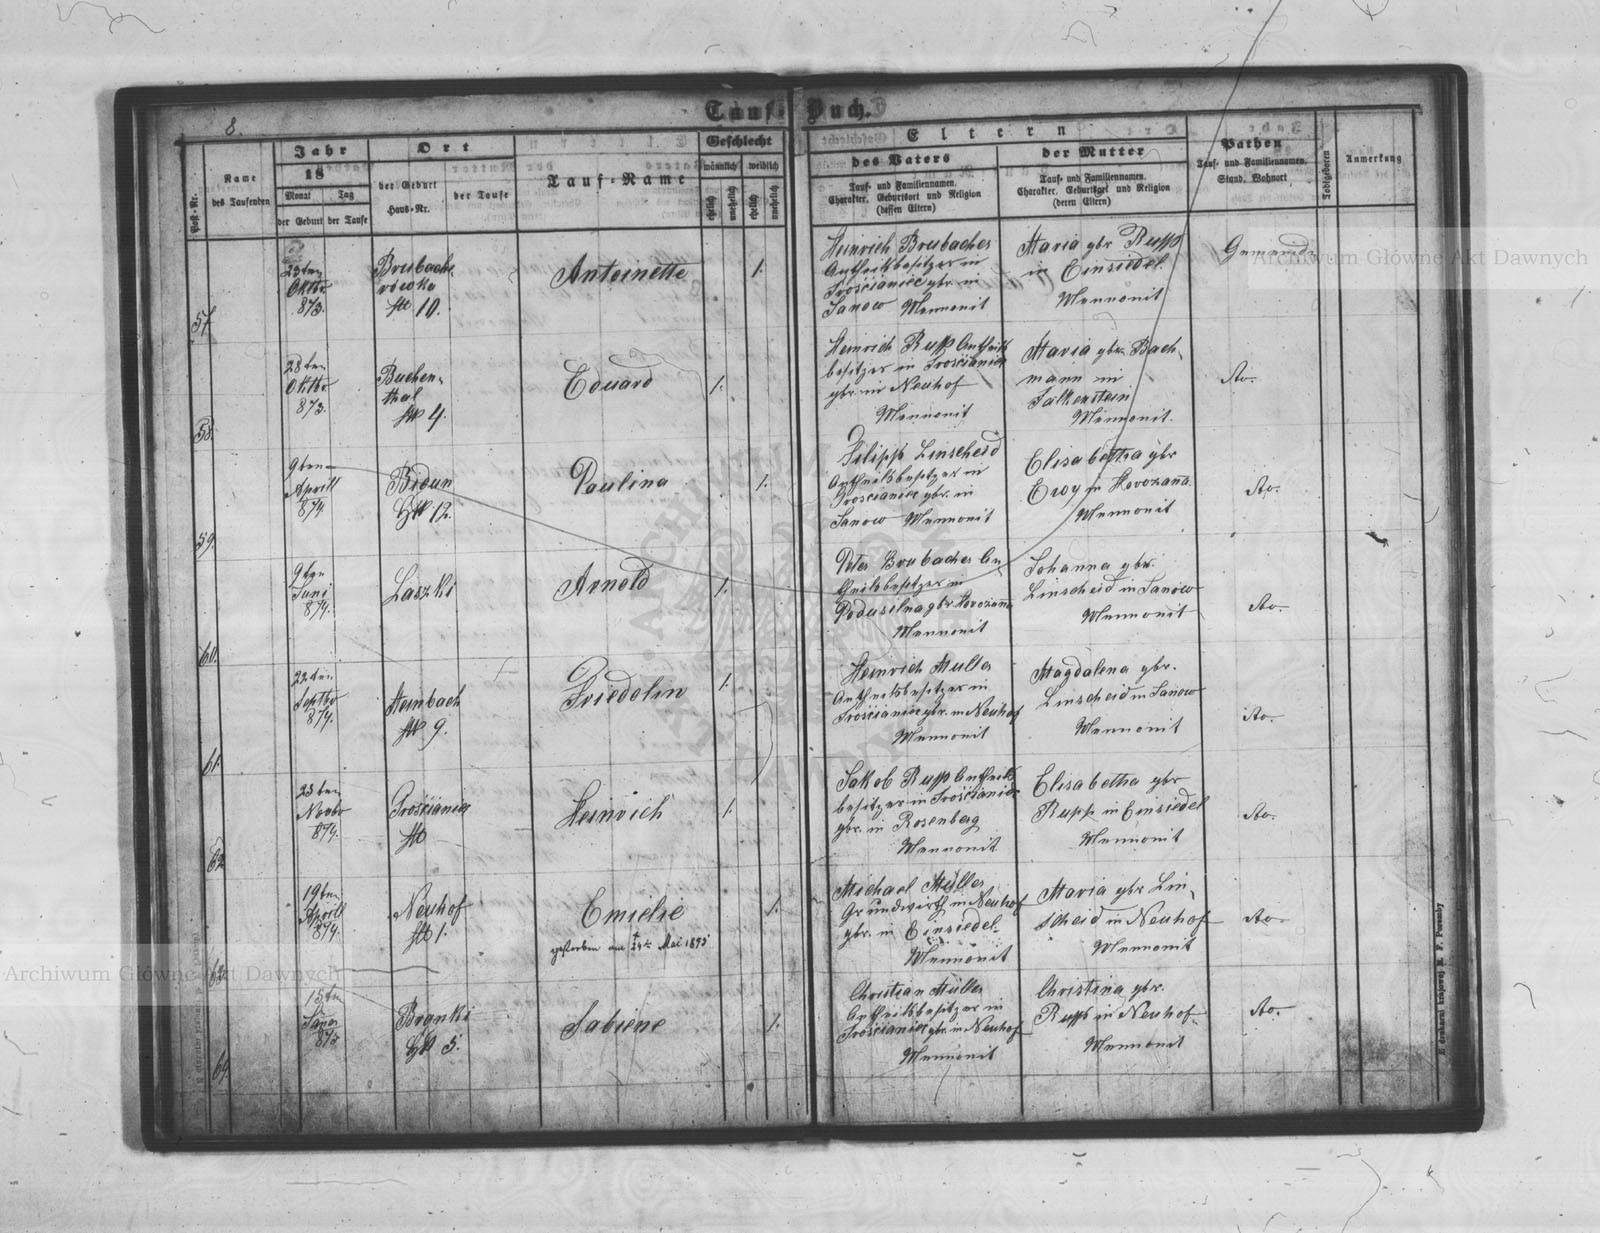 8.
Tauf-Buch.
Post-Nr.
Name
des Taufenden
Jahr
18
Monat
Tag
der Geburt
der Taufe
Ort
der Geburt
Haus-Nr.
der Taufe
Tauf-Name
Geschlecht
männlich
weiblich
ehelich
unehelich
ehelich
unehelich
Eltern
des Vaters
Tauf- und Familiennamen,
Charakter, Geburtsort und Religion
(dessen Eltern)
der Mutter
Tauf- und Familiennamen,
Charakter, Geburtsort und Religion
(deren Eltern)
Pathen
Tauf- und Familiennamen,
Stand, Wohnort
Todtgeboren
Anmerkung
57.
23ten
Oktbr
873.
Brubache
rowka
№ 10.
Antoinette
1.
Heinrich Brubacher
Antheilsbesitzer in
Trościaniec gbr. in
Janow Mennonit
Maria gbr Rupp
in Einsiedel
Mennonit
58.
28ten
Oktbr
873.
Buchen-
thal
№ 4.
Eduard
1.
Heinrich Rupp Antheils
besitzer in Trościaniec
gbr. in Neuhof
Mennonit
Maria gbr. Bach-
mann in
Falkenstein
Mennonit.
do.
59.
9ten
Aprill
874
Braun
№ 12.
Paulina
1.
Filipp Linscheid
Antheilsbesitzer in
Troscianiec gbr. in
Janow Mennonit
Elisabetha gbr
Ewy in Horozanna
Mennonit
do.
60.
9ten
Juni
874.
Laszki
Arnold
1.
Peter Brubacher An
theilsbesitzer in
Podusilna gbr. Horozanna
Mennonit
Johanna gbr.
Linscheid in Janow
Mennonit
do.
61.
22ten
Septbr
874.
Steinbach
№ 9.
Friedolin
1.
Heinrich Müller
Antheilsbesitzer in
Trościaniec gbr. in Neuhof
Mennonit
Magdalena gbr.
Linscheid in Janow
Mennonit
do.
62.
23ten
Novbr
874.
Trościaniec
№
Heinrich
1.
Jakob Rupp Antheils
besitzer in Trościaniec
gbr. in Rosenberg
Mennonit
Elisabetha gbr
Rupp in Einsiedel
Mennonit
do.
19ten
Aprill
874.
Neuhof
№ 1.
Emielie
gestorben am 24te Mai 1895
1.
Michael Müller
Grundwirth in Neuhof
gbr. in Einsiedel
Mennonit
Maria gbr Lin-
scheid in Neuhof
Mennonit
do.
64.
15ten
Jäner
875
Branki
№ 5.
Sabiene
1.
Christian Müller
Antheilsbesitzer in
Trościaniec gbr. in Neuhof
Mennonit
Christina gbr.
Rupp in Neuhof
Mennonit
do.
Archiwum Główne Akt Dawnych
Archiwum Główne Akt Dawnych